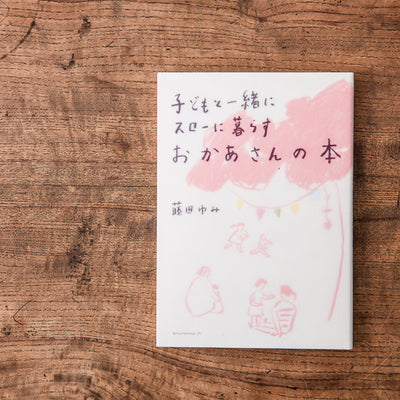 子どもと一緒に
スローに暮らす
おかあさんの本
藤田ゆみ